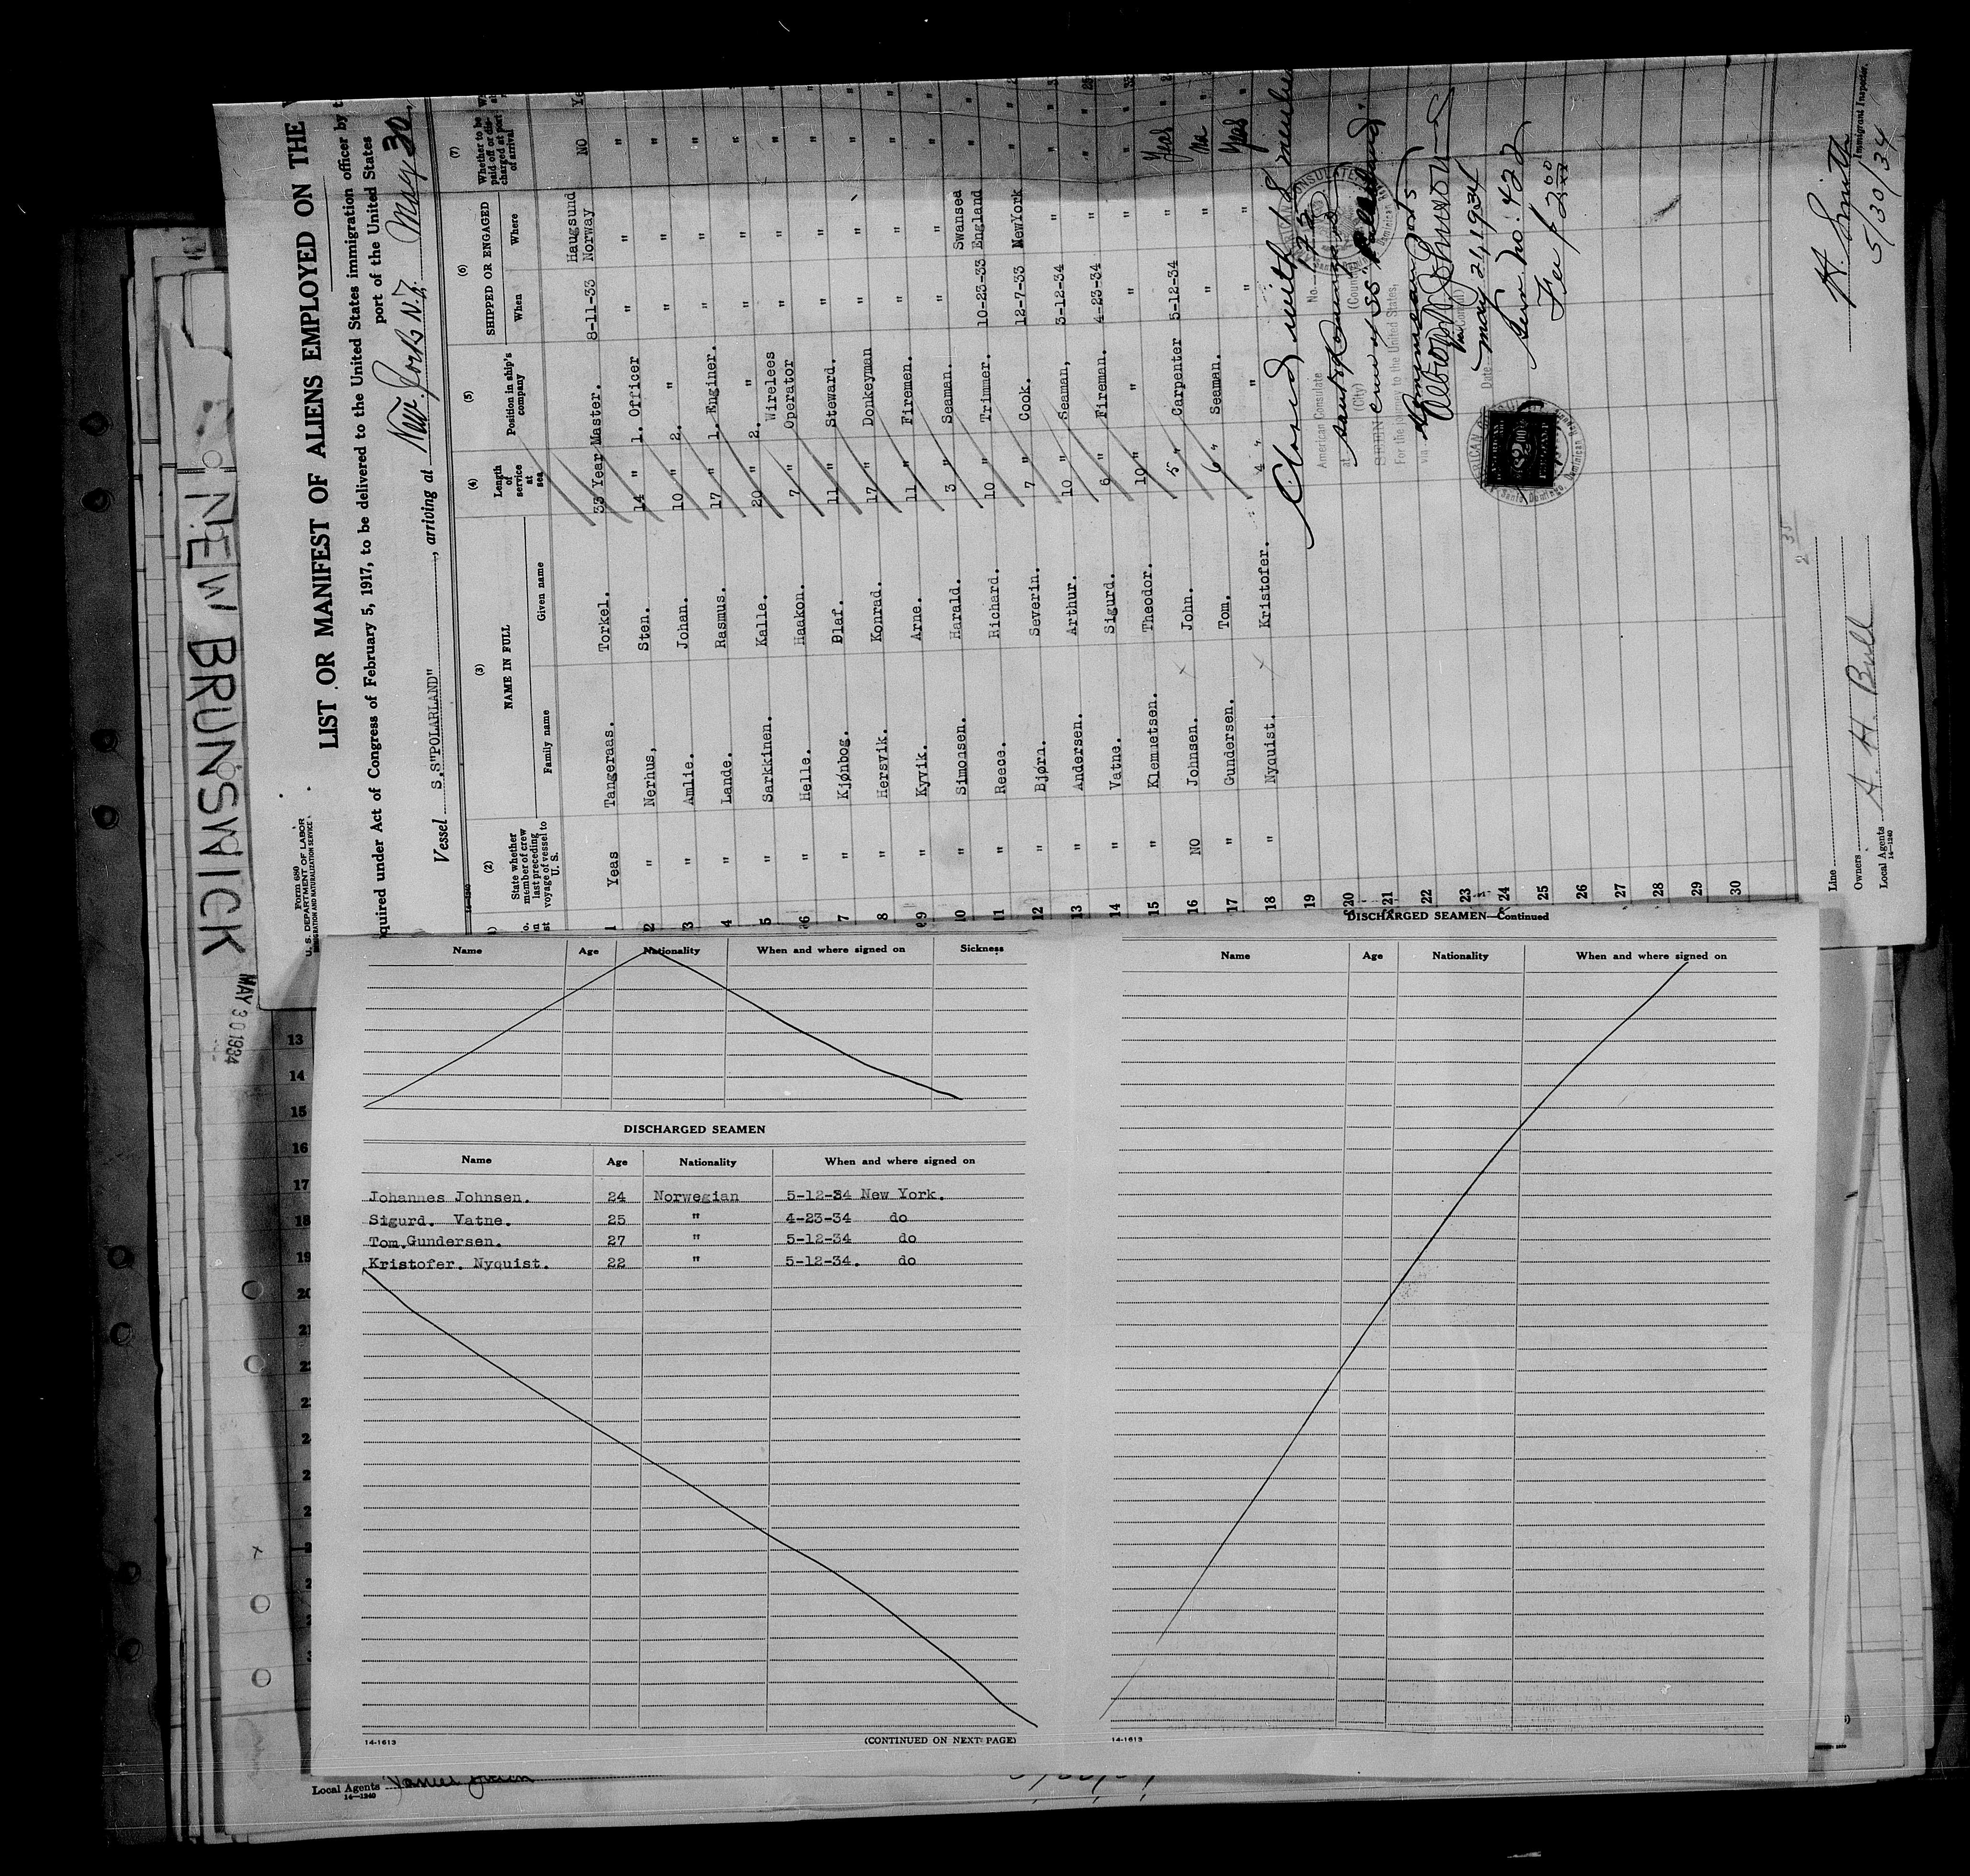 NEW BRUNSWICK
MAY 30 1934
Form 680
U. S. DEPARTMENT OF LABOR
IMMIGRATION AND NATURALIZATION SERVICE
LIST OR MANIFEST OF ALIENS EMPLOYED ON THE
quired under Act of Congress of February 5, 1917, to be delivered to the United States immigration officer by t
port of the United States
Vessel S.S"POLARLAND", arriving at New York N.Y. May 30,
14-1240
(2) (3) (4) (5) (6) (7)
State whether member of crew last preceding voyage of vessel to U. S.
NAME IN FULL
Family name Given name
Length of service at sea
Position in ship's company
SHIPPED OR ENGAGED
When Where
Whether to be paid off or discharged at port of arrival
1 Yeas Tangeraas. Torkel. 33 Year Master. 8-11-33 Haugsund Norway NO
2 " Nerhus, Sten. 14 " 1. Officer " " "
3 " Amlie. Johan. 10 " 2. " " " "
4 " Lande. Rasmus. 17 " 1. Enginer. " " "
5 " Sarkkinen. Kalle. 20 " 2. " " " "
6 " Helle. Haakon. 7 " Wirelees Operator " " "
7 " Kjønbog. Blaf. 11 " Steward. " " "
8 " Hersvik. Konrad. 17 " Donkeyman " " "
9 " Kyvik. Arne. 11 " Firemen. " " "
10 " Simonsen. Harald. 3 " Seaman. " " "
11 " Reece. Richard. 10 " Trimmer. 10-23-33 Swansea England "
12 " Bjørn. Severin. 7 " Cook. 12-7-33 NewYork "
13 " Andersen. Arthur. 10 " Seaman, 3-12-34 " "
14 " Vatne. Sigurd. 6 " Fireman. 4-23-34 " "
15 " Klemmetsen. Theodor. 10 " " " " "
16 NO Johnsen. John. 5 " Carpenter 5-12-34 " Yeas
17 " Gundersen. Tom. 6 " Seaman. " " No
18 " Nyquist. Kristofer. 4 " " " " Yeas
19
20
21
22
23
24
25
26
27
28
29
30
Closed with
American Consulate No. 173
at Santo Domingo
(City) (Country)
SEEN crew of SS "Polarland"
For the journey to the United States,
via Dominican ports
Date May 21, 1934
Serv. No: 422
Fee $ 2.00
AMERICAN CONSULATE
Santo Domingo, Dominican
35
2
Line
Owners
Local Agents A. H. Bull
14-1240
H. Smith
Immigrant Inspector.
5/30/34
Name Age Nationality When and where signed on Sickness
DISCHARGED SEAMEN
Name Age Nationality When and where signed on
Johannes Johnsen. 24 Norwegian 5-12-34 New York.
Sigurd. Vatne. 25 " 4-23-34 do
Tom.Gundersen. 27 " 5-12-34 do
Kristofer. Nyquist. 22 " 5-12-34. do
14-1613
(CONTINUED ON NEXT PAGE)
DISCHARGED SEAMEN—Continued
Name Age Nationality When and where signed on
14-1613
13
14
15
16
17
18
19
20
21
Local Agents
14-1240